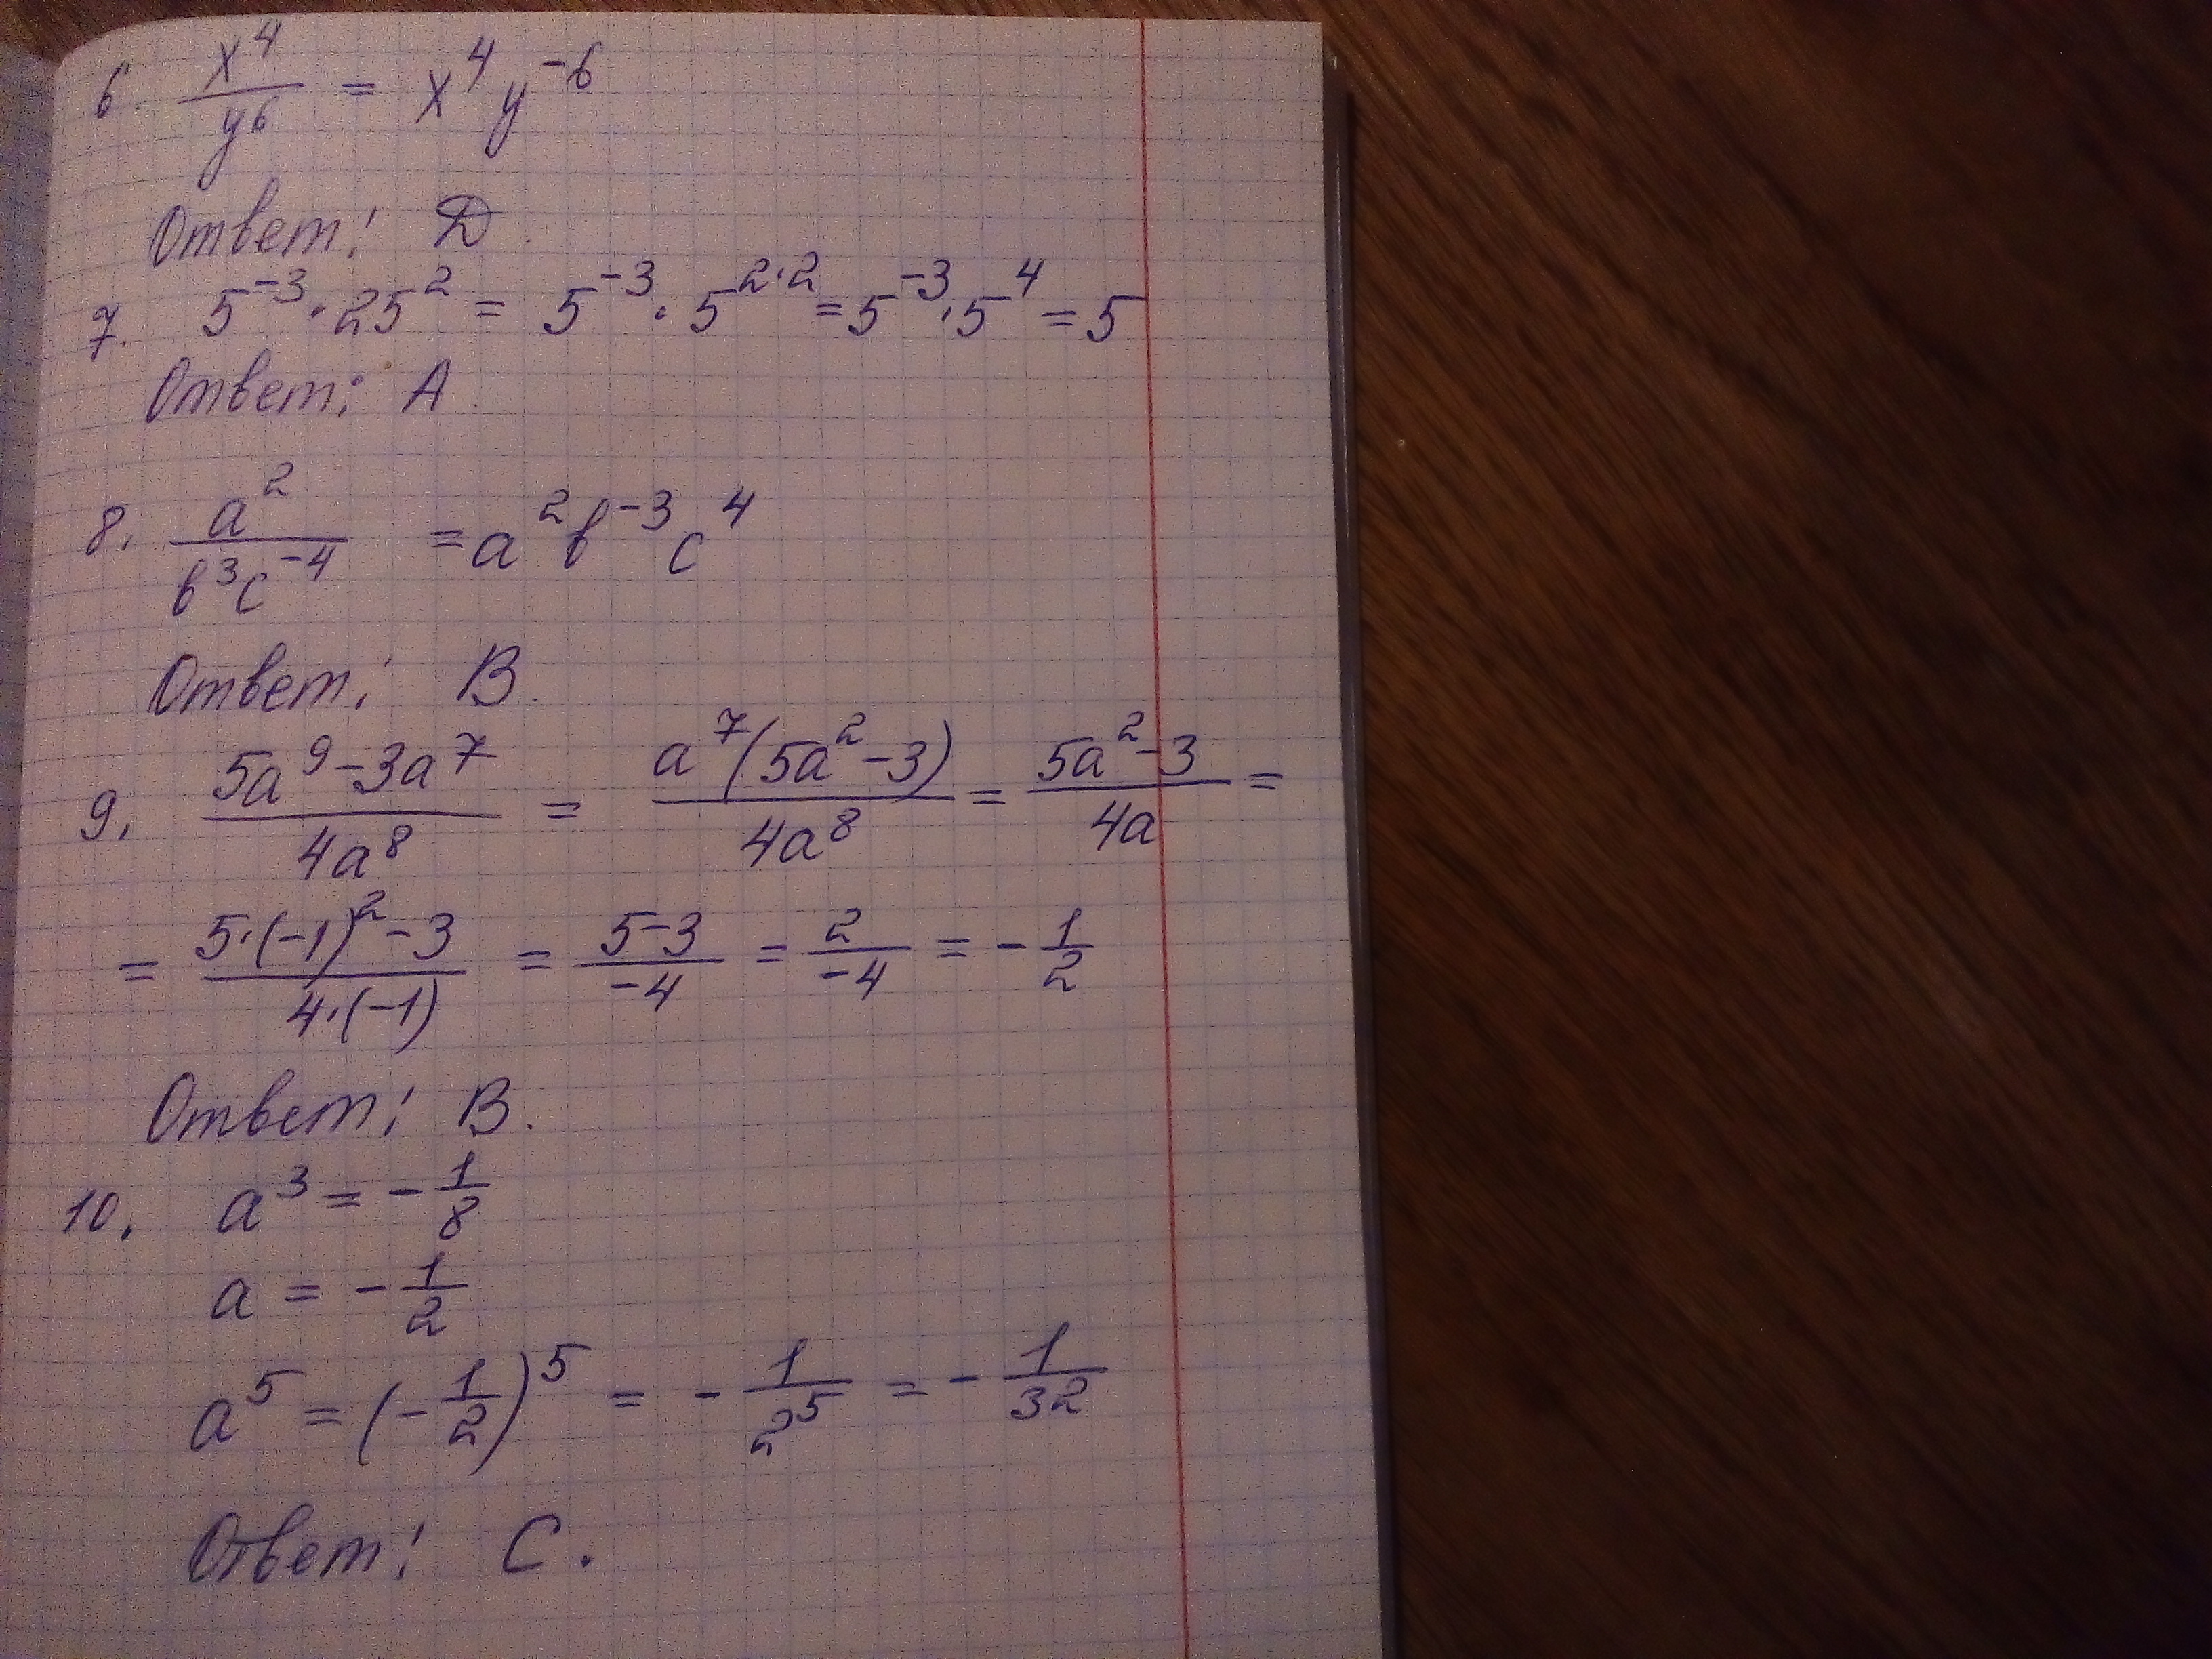 6. x⁴/y⁶ = x⁴y⁻⁶
Ответ: D.
7. 5⁻³·25² = 5⁻³·5²·² = 5⁻³·5⁴ = 5
Ответ: А
8. a²/(b³c⁻⁴) = a²b⁻³c⁴
Ответ: В.
9. (5a⁹-3a⁷)/(4a⁸) = a⁷(5a²-3)/(4a⁸) = (5a²-3)/(4a) =
= (5·(-1)²-3)/(4·(-1)) = (5-3)/(-4) = 2/(-4) = -1/2
Ответ: В.
10. a³ = -1/8
a = -1/2
a⁵ = (-1/2)⁵ = -1/2⁵ = -1/32
Ответ: С.